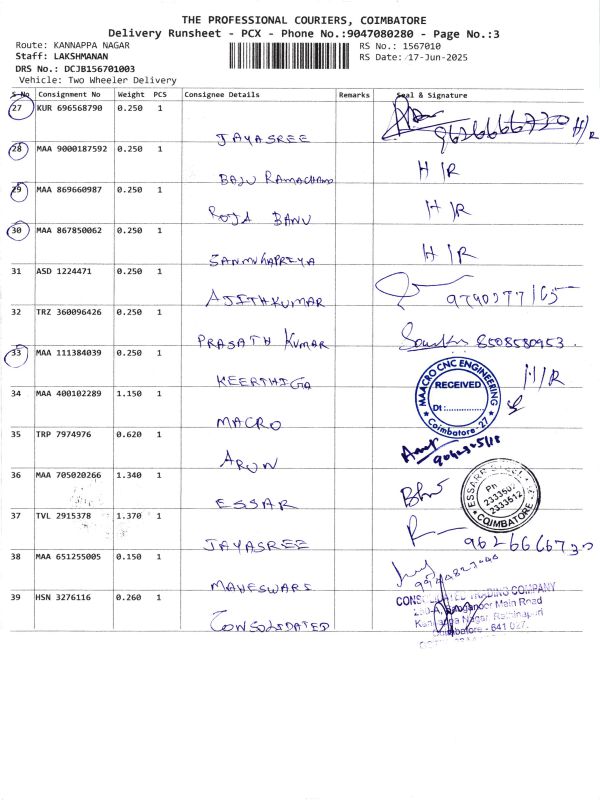 THE PROFESSIONAL COURIERS, COIMBATORE
Delivery Runsheet - PCX - Phone No.:9047080280 - Page No.:3
Route: KANNAPPA NAGAR RS No.: 1567010
Staff: LAKSHMANAN RS Date: 17-Jun-2025
DRS No.: DCJB156701003
Vehicle: Two Wheeler Delivery
S No Consignment No Weight PCS Consignee Details Remarks Seal & Signature
27 KUR 696568790 0.250 1
JAYASREE 9626666730 H/R
28 MAA 9000187592 0.250 1
BAJU RAMACHAND H/R
29 MAA 869660987 0.250 1
ROJA BANU H/R
30 MAA 867850062 0.250 1
SANMUHAPREYA H/R
31 ASD 1224471 0.250 1
AJITHKUMAR
32 TRZ 360096426 0.250 1
PRASATH KUMAR 8508530953.
33 MAA 111384039 0.250 1
KEERTHIGA H/R
34 MAA 400102289 1.150 1
MACRO
MAACRO CNC ENGINEERING
RECEIVED
Dt:
Coimbatore-27
35 TRP 7974976 0.620 1
ARUN
36 MAA 705020266 1.340 1
ESSAR
ESSARR STEEL
Ph
2333612
COIMBATORE
37 TVL 2915378 1.370 1
JAYASREE 9626666730
38 MAA 651255005 0.150 1
MAHESWARI
39 HSN 3276116 0.260 1
CONSOLIDATED
CONSOLIDATED TRADING COMPANY
Sanganoor Main Road
Kannappa Nagar, Rathinapuri
Coimbatore - 641 027.